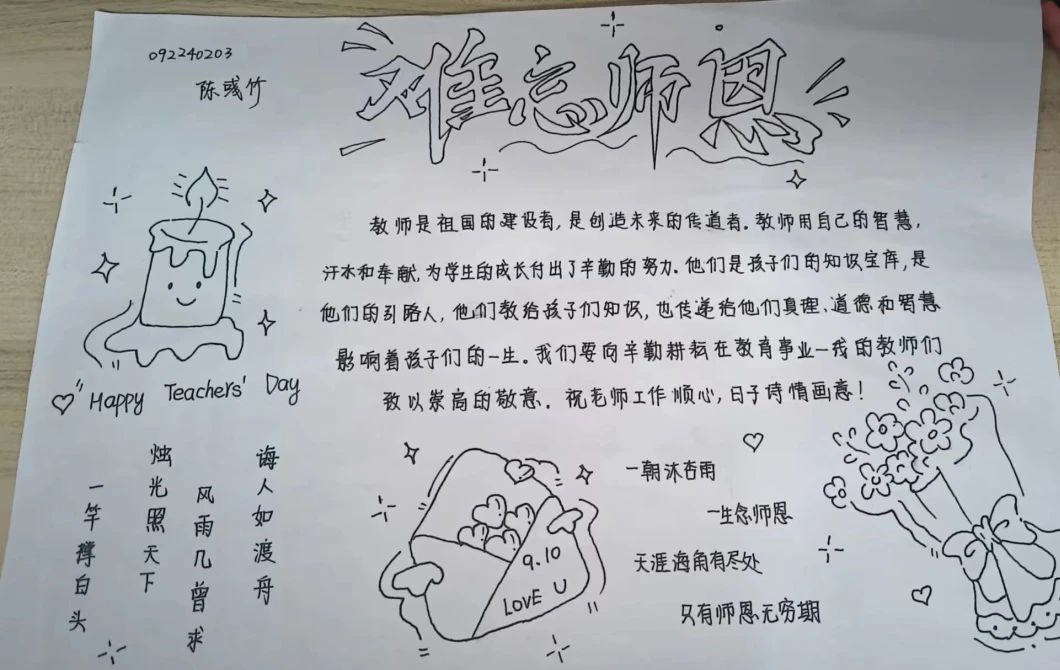 092240203
陈彧竹
难忘师恩
教师是祖国的建设者,是创造未来的传道者.教师用自己的智慧,
汗水和奉献,为学生的成长付出了辛勤的努力.他们是孩子们的知识宝库,是
他们的引路人,他们教给孩子们知识,也传递给他们真理、道德和智慧
影响着孩子们的一生.我们要向辛勤耕耘在教育事业一线的教师们
致以崇高的敬意.祝老师工作顺心,日子诗情画意!
"Happy Teachers' Day
诲人如渡舟
风雨几曾求
烛光照天下
一竿撑白头
9.10
LOVE U
一朝沐杏雨
一生念师恩
天涯海角有尽处
只有师恩无穷期